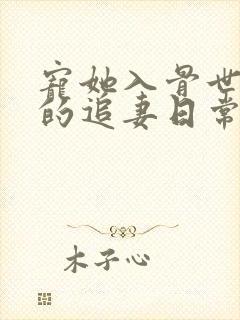 寵她入骨世
的追妻日常
木子心